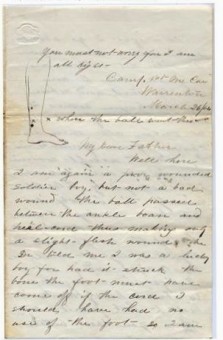 You must not worry you I am
all right
Camp 1st Me Cav
Warrenton
March 26/64
x where the ball went thro
My Dear Father
Well here
I am again a poor wounded
soldier boy, but not a bad
wound the ball passed
between the ankle boan and
heal cord thus making only
a slight flesh wound. The
Dr told me I was a lucky
boy for had it struck the
bone the foot must have
come off if the cord I
should have had no
use of the foot so I am